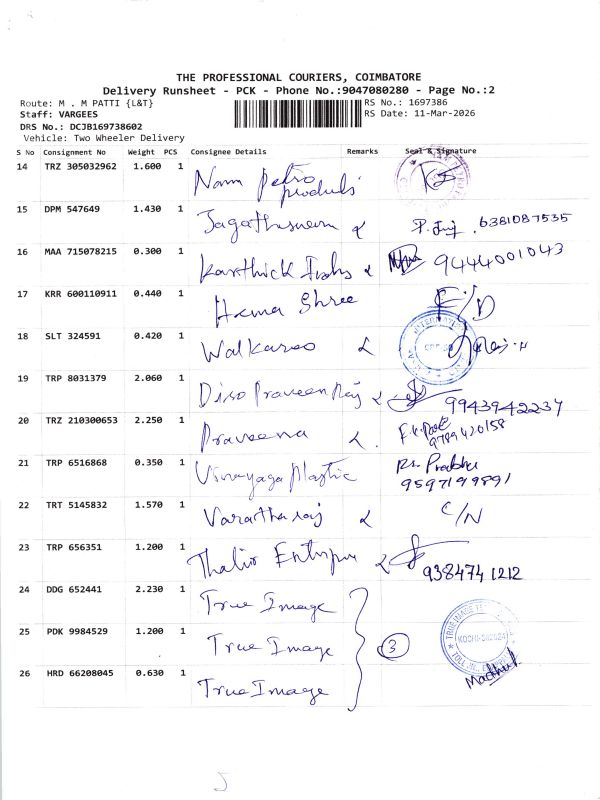 THE PROFESSIONAL COURIERS, COIMBATORE
Delivery Runsheet - PCK - Phone No.:9047080280 - Page No.:2
Route: M . M PATTI {L&T}
RS No.: 1697386
Staff: VARGEES
RS Date: 11-Mar-2026
DRS No.: DCJB169738602
Vehicle: Two Wheeler Delivery
S No Consignment No Weight PCS Consignee Details Remarks Seal & Signature
14 TRZ 305032962 1.600 1 Nam Petro products
15 DPM 547649 1.430 1 6381087535
16 MAA 715078215 0.300 1 Karthick 9444001043
17 KRR 600110911 0.440 1 Hema Shree
18 SLT 324591 0.420 1 Walkaroo
19 TRP 8031379 2.060 1 Praveen Raj 9943942237
20 TRZ 210300653 2.250 1 Praveena 9789420158
21 TRP 6516868 0.350 1 Vinayaga Plastic Prabhu 9597199891
22 TRT 5145832 1.570 1 Varatharaj C/N
23 TRP 656351 1.200 1 9384741212
24 DDG 652441 2.230 1 True Image
25 PDK 9984529 1.200 1 True Image 3
26 HRD 66208045 0.630 1 True Image